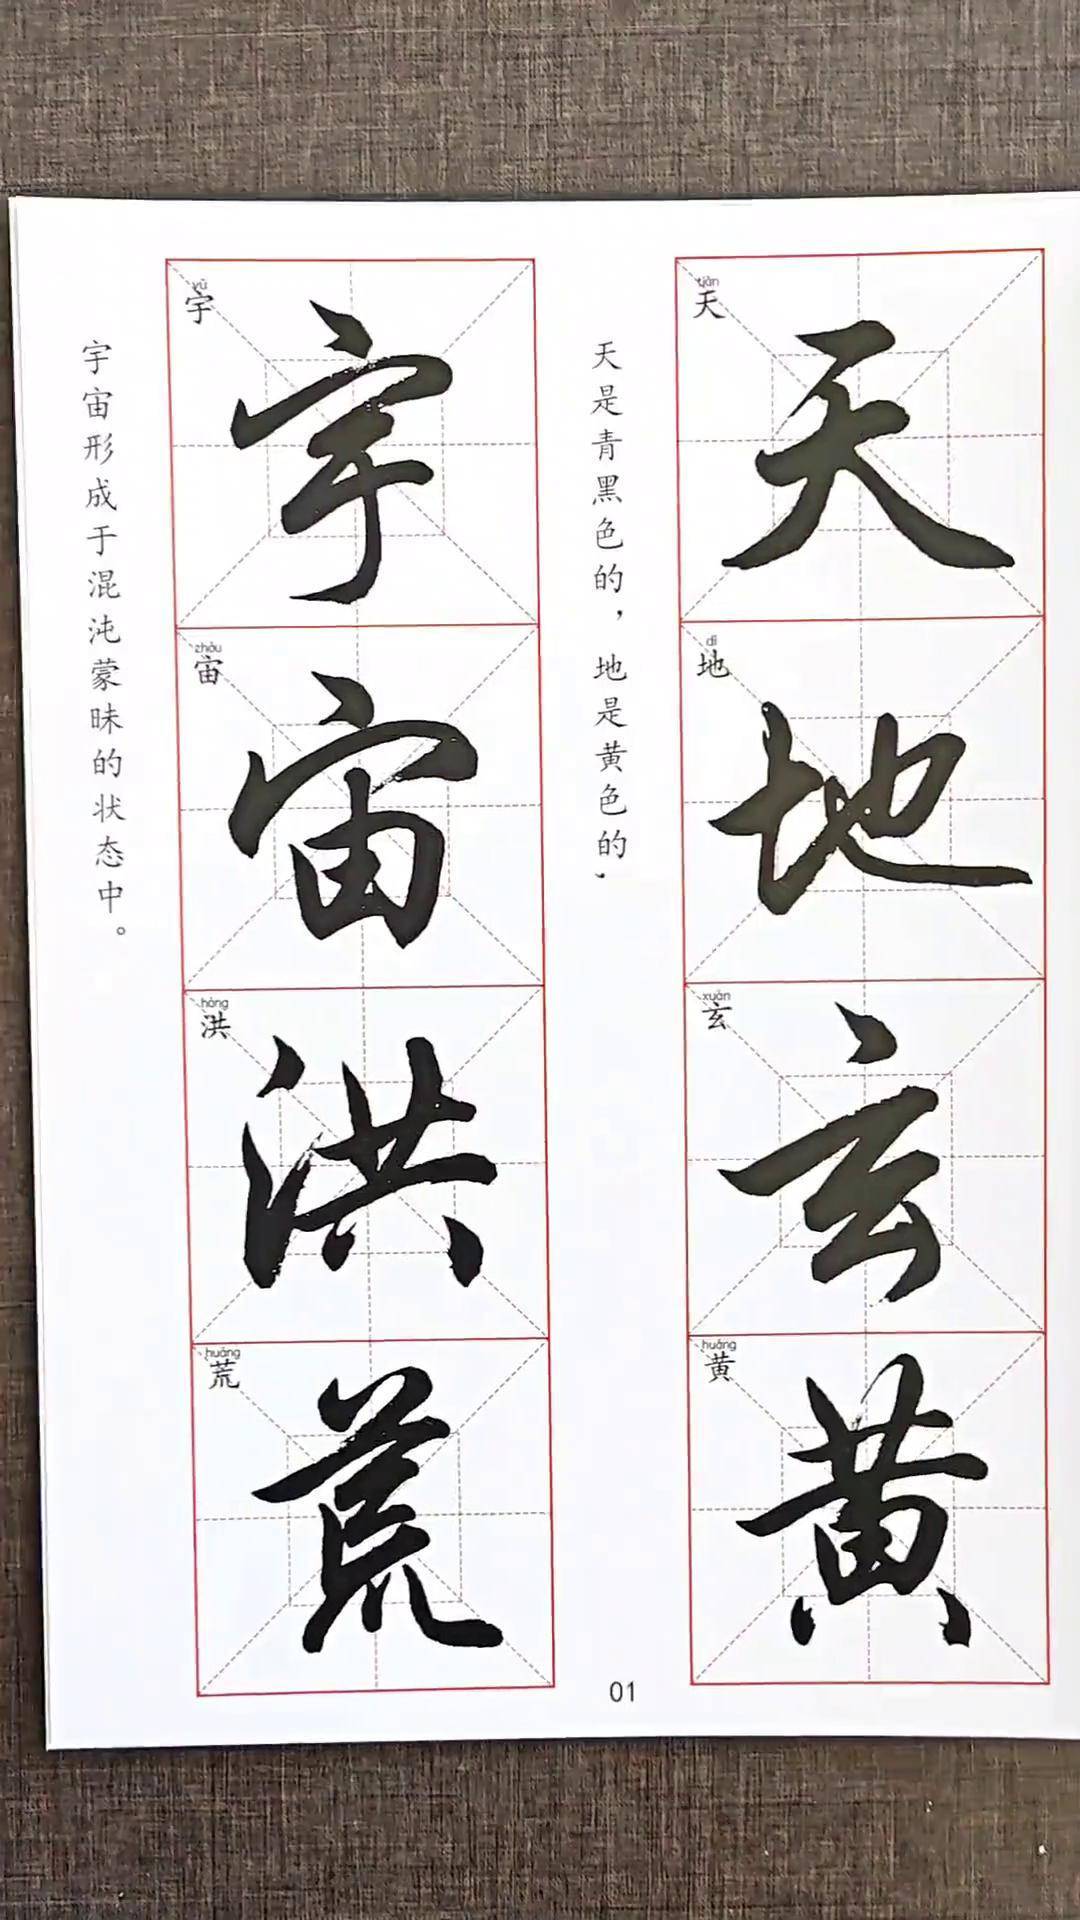 tiān dì xuán huáng
天地玄黄
天地玄黄
天是青黑色的，地是黄色的，
yǔ zhòu hóng huāng
宇宙洪荒
宇宙洪荒
宇宙形成于混沌蒙昧的状态中。
01